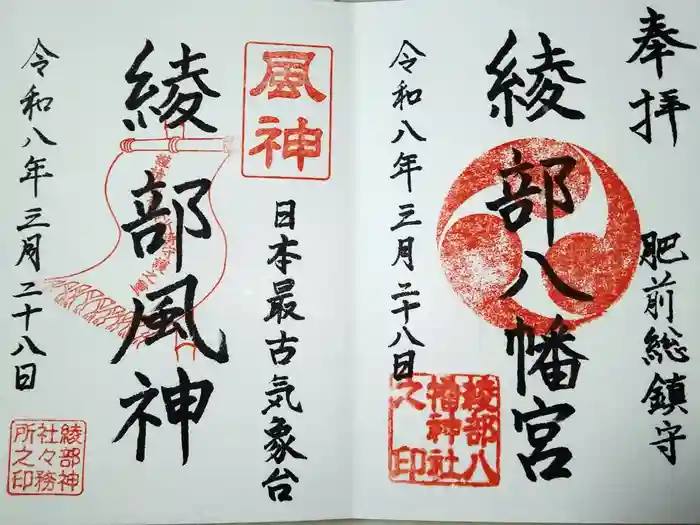 奉拝
肥前総鎮守
綾部八幡宮
綾部八
幡神社
之印
令和八年三月二十八日
風神
日本最古気象台
綾部風神
令和八年三月二十八日
綾部神
社々務
所之印